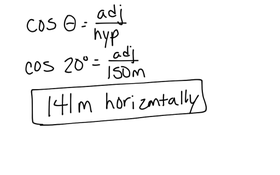 cos θ = adj/hyp
cos 20° = adj/150m
141m horizontally